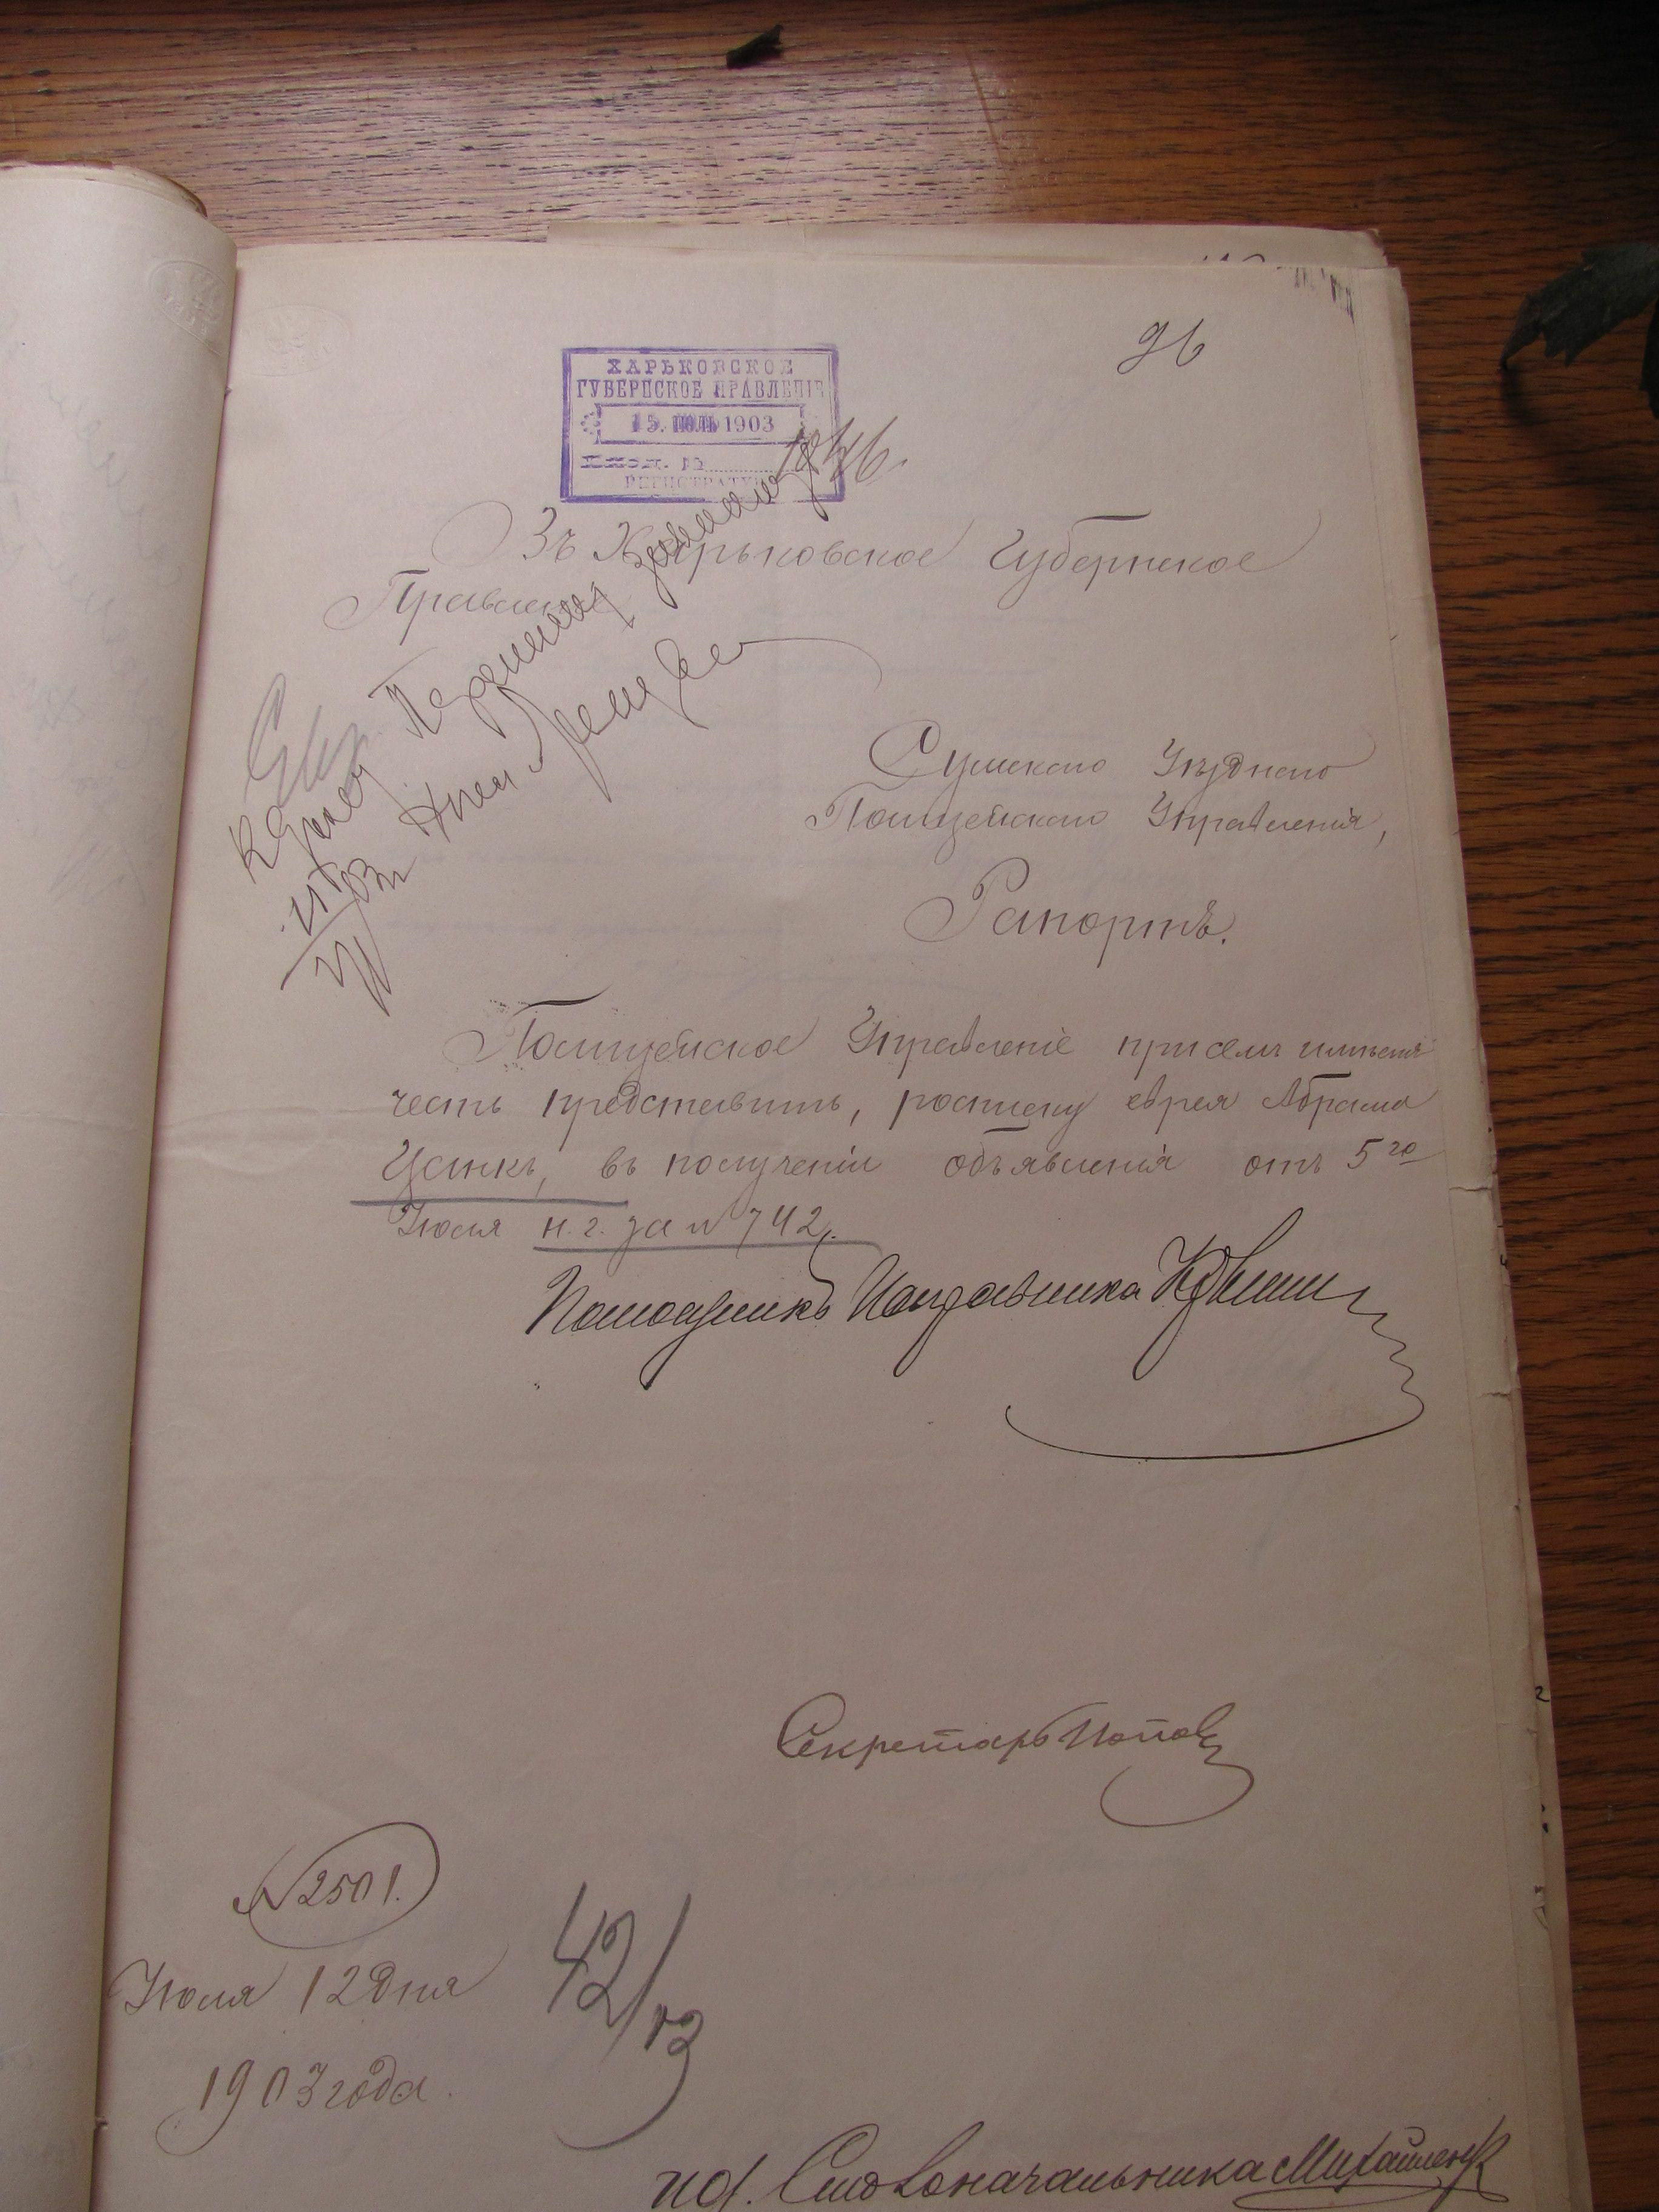 96
ХАРЬКОВСКОЕ
ГУБЕРНСКОЕ ПРАВЛЕНІЕ
15. ІЮЛЬ 1903
ВХОД. №
РЕГИСТРАТУР
Въ Харьковское Губернское
Правленіе
Сумскаго Уѣзднаго
Полицейскаго Управленія,
Рапортъ.
Полицейское Управленіе при семъ имѣетъ
честь представить, росписку еврея Абрама
въ полученіи объявленія отъ 5го
Іюля н. г. за № 742.
Помощникъ Исправника
Секретарь Попов
№ 2501.
Іюля 12 дня
1903 года.
42/
ид. Столоначальника Михайленко